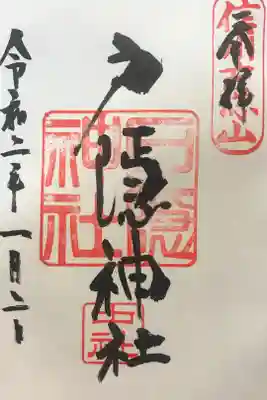 奉拝
戸隠神社
戸隠
神社
中社
令和二年一月二日